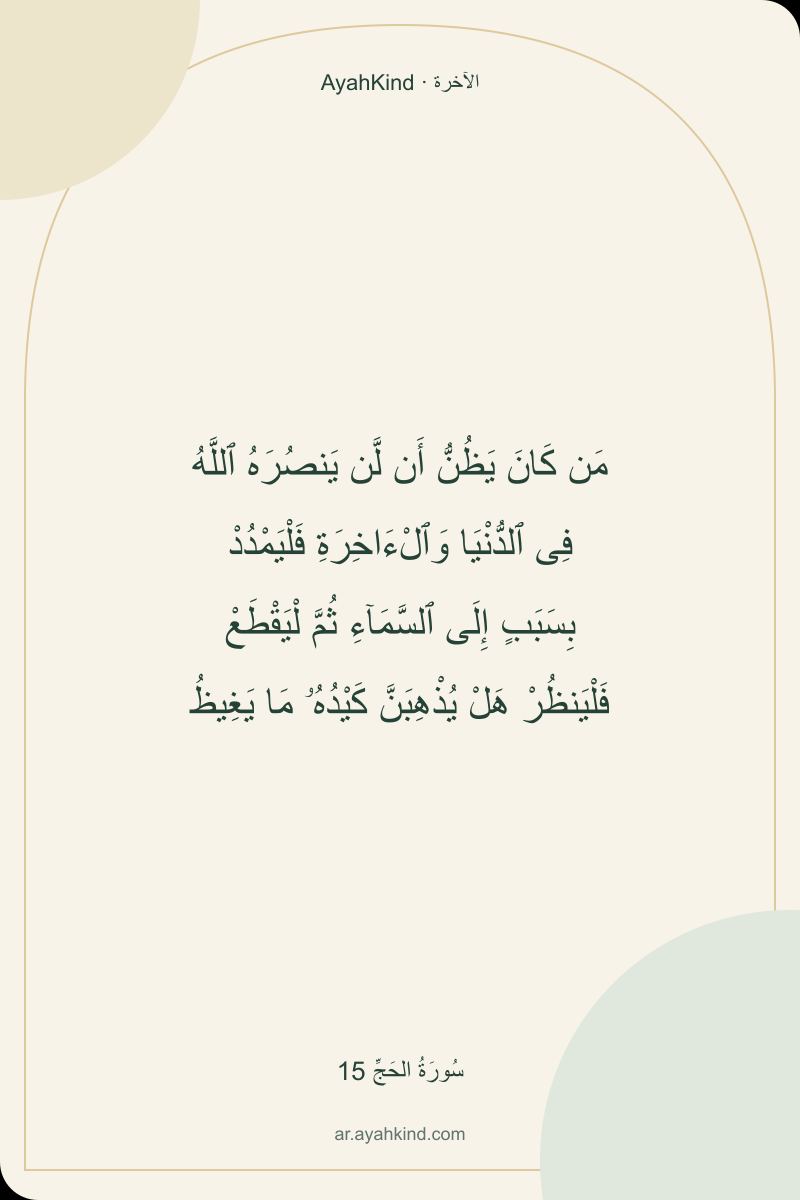 AyahKind · الآخرة
مَن كَانَ يَظُنُّ أَن لَّن يَنصُرَهُ ٱللَّهُ
فِى ٱلدُّنْيَا وَٱلْءَاخِرَةِ فَلْيَمْدُدْ
بِسَبَبٍ إِلَى ٱلسَّمَآءِ ثُمَّ لْيَقْطَعْ
فَلْيَنظُرْ هَلْ يُذْهِبَنَّ كَيْدُهُۥ مَا يَغِيظُ
سُورَةُ الحَجِّ 15
ar.ayahkind.com